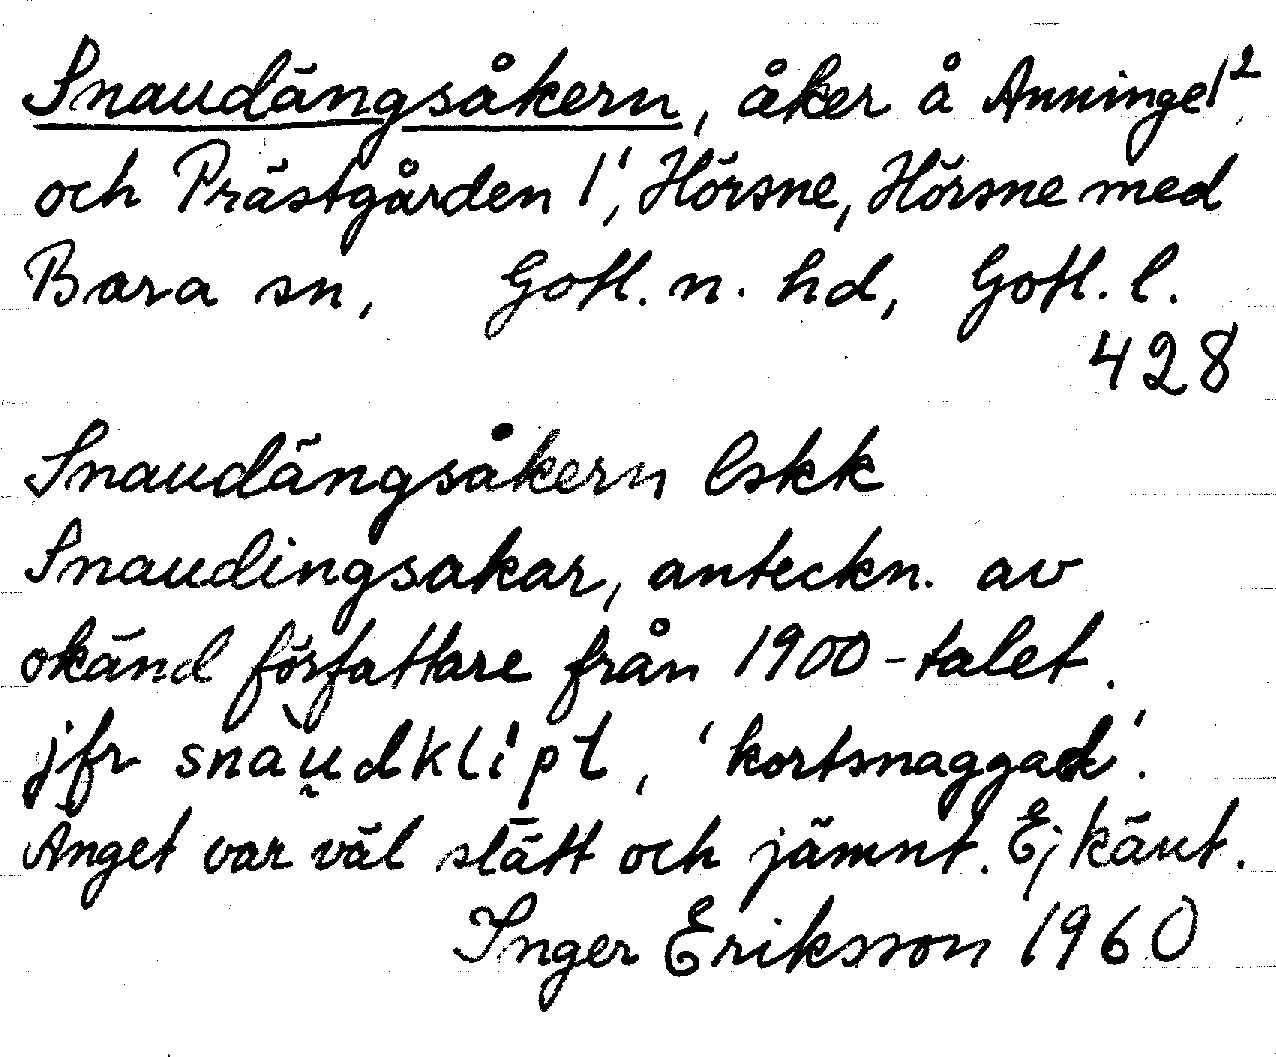 Snaudängsåkern, åker å Anningel²
och Prästgården 1', Hörsne, Hörsne med
Bara sn, Gotl. n. hd, Gotl. l.
428
Snaudängsåkern Eskk
Snaudingsakar, anteckn. av
okänd författare från 1900-talet.
jfr snàu̯dklipt, 'kortsnaggad'.
Änget var väl slätt och jämnt. Ej känt.
Inger Eriksson 1960